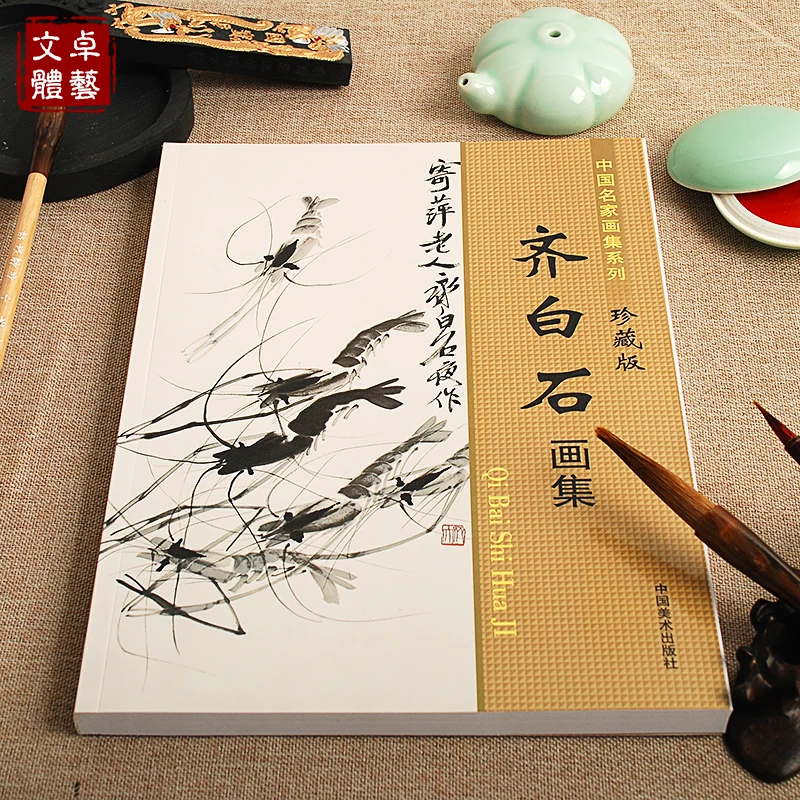 卓藝
文體
中国名家画集系列
珍藏版
齐白石画集
Qi Bai Shi Hua JI
中国美术出版社
寄萍老人齐白石夜作